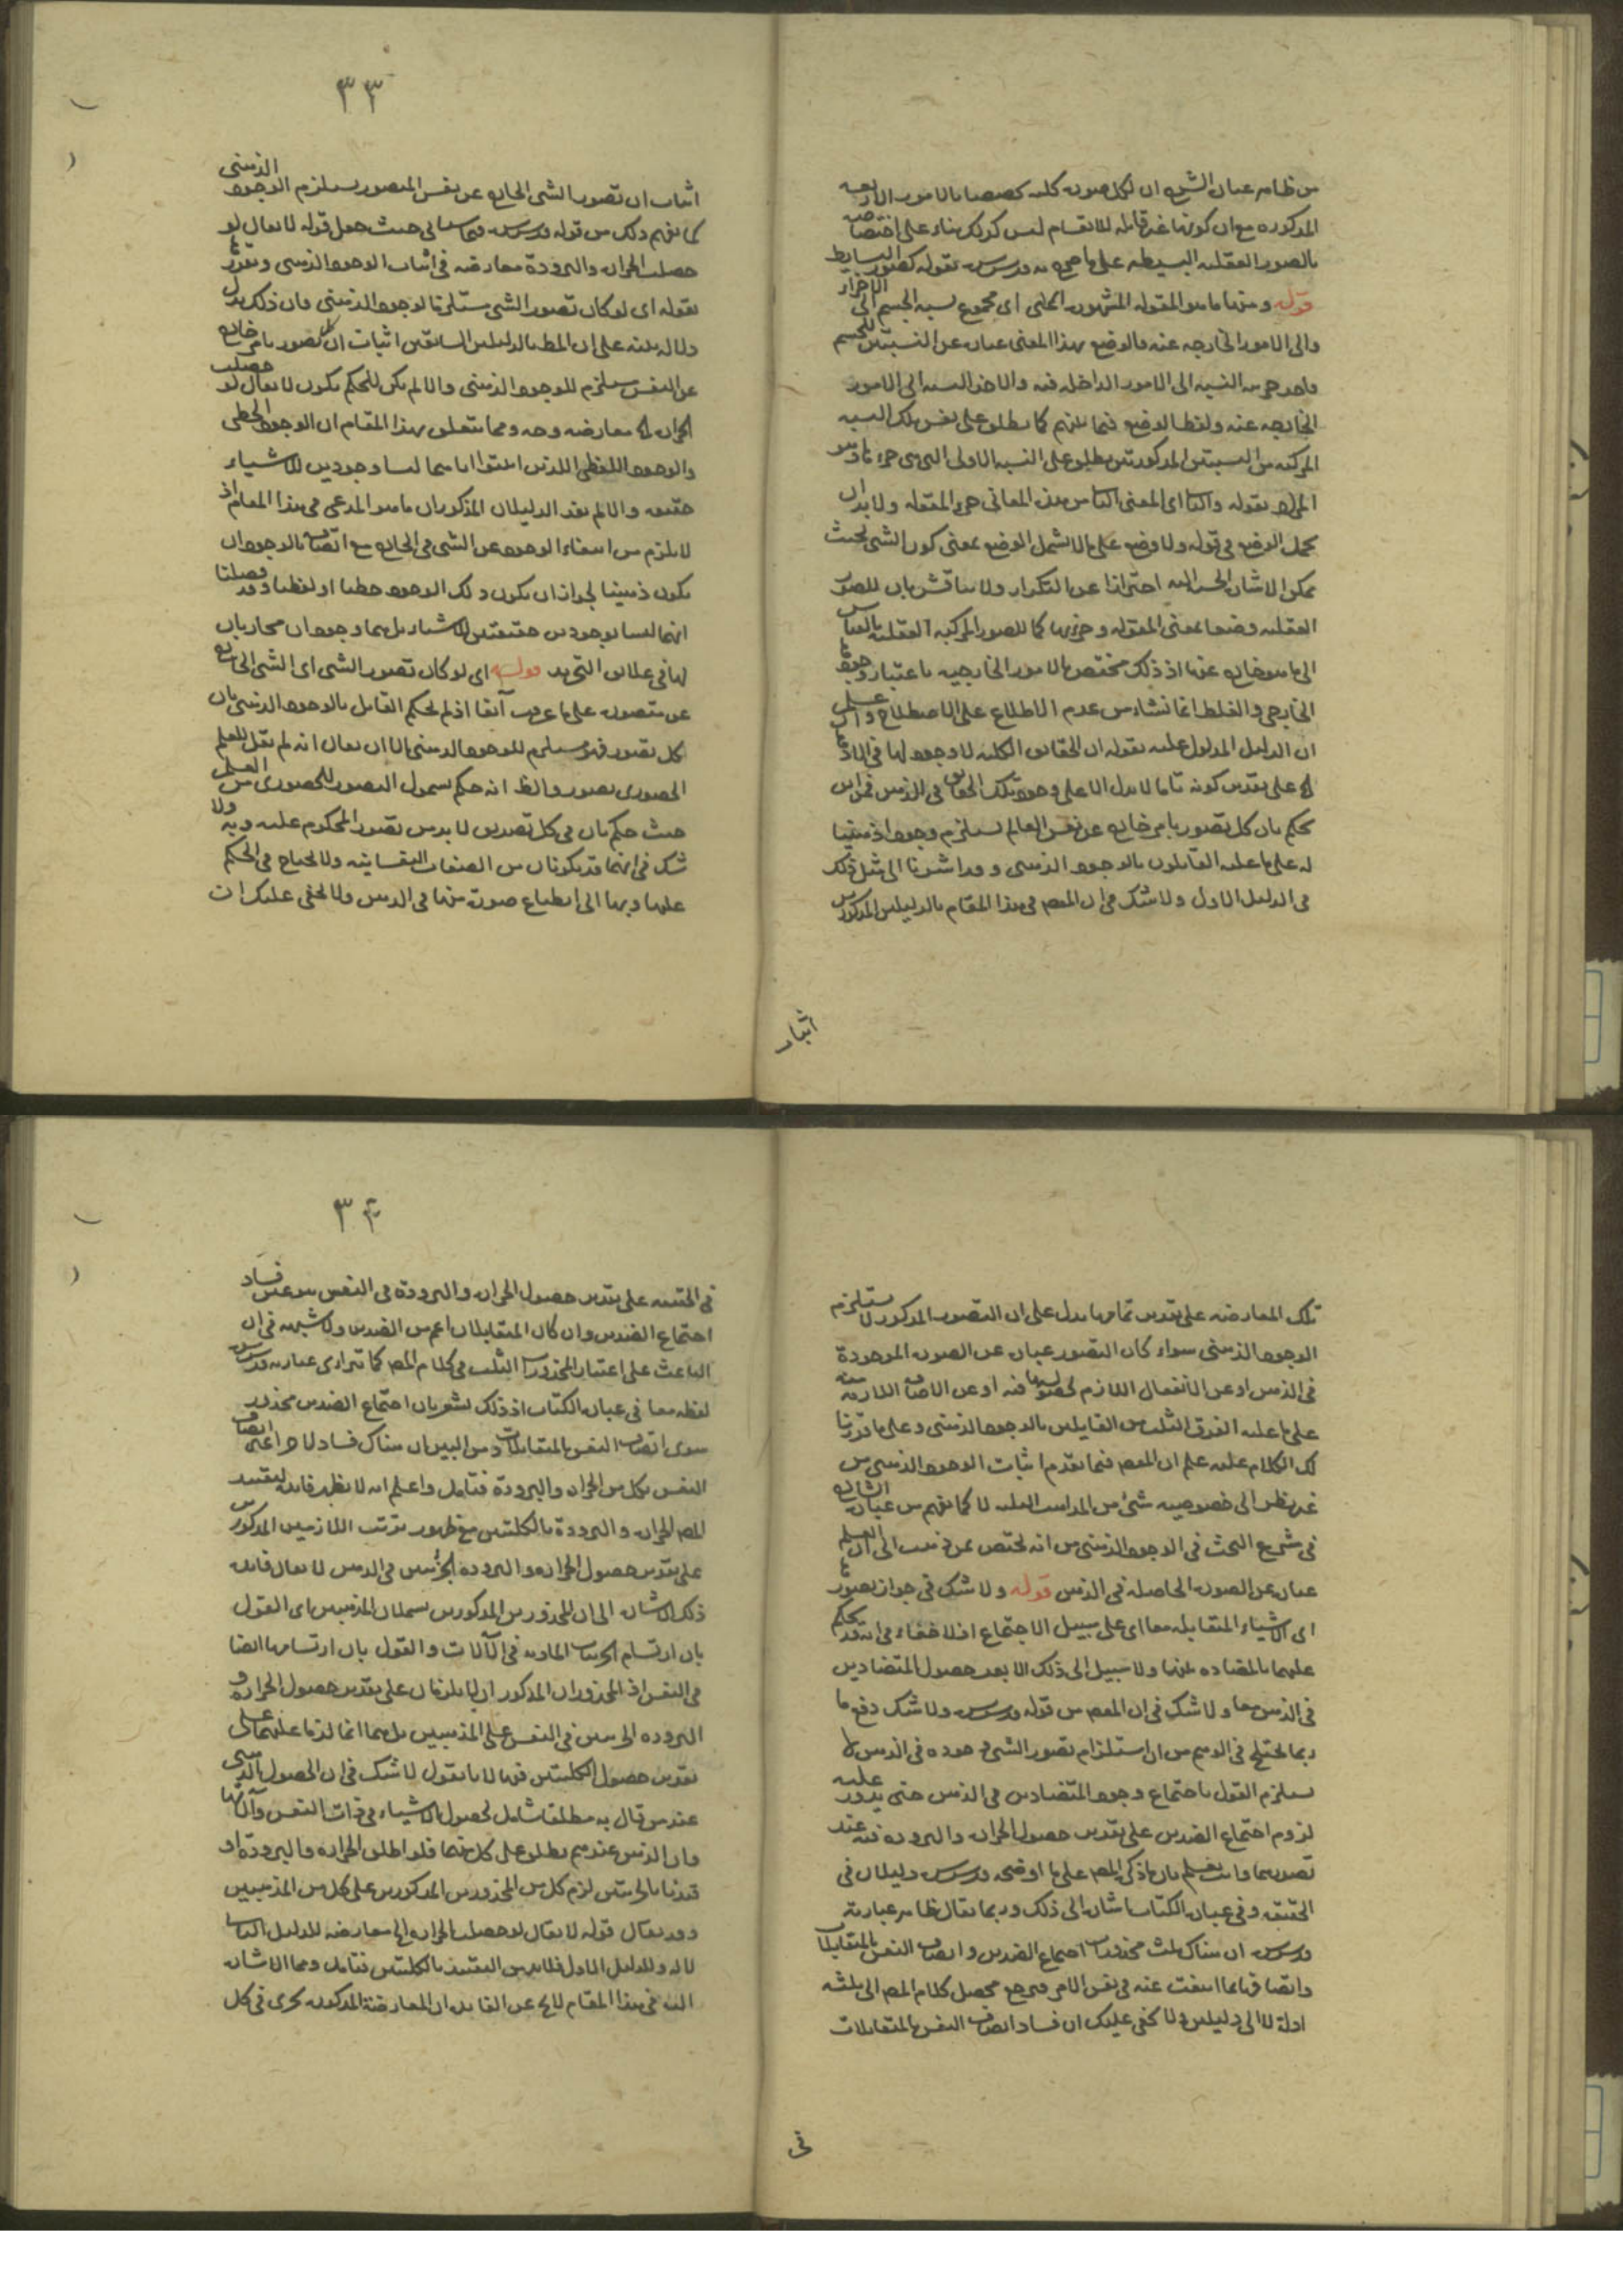 من ظاهر عبارة الشرح ان لكل صورة كلية تخصصا بالامور الاربعة
المذكورة مع ان كونها غير قابلة للانقسام ليس كذلك بناء على اختصاصه
بالصور العقلية البسيطة على ما صرح به قدس سره بقوله كصور البسايط
قوله ومنها ما هو المقولة المشهورة اعنى اى مجموع نسبة الجسم الى الاجزاء
والى الامور الخارجة عنه فالوضع بهذا المعنى عبارة عن النسبتين للجسم
واحد جزئيه النسبة الى الامور الداخلة فيه والاخر النسبة الى الامور
الخارجة عنه ولفظ الوضع فيما بينهم كما يطلق على نفس تلك النسبة
المركبة من النسبتين المذكورتين يطلق على النسبة الاولى التى هى جزء
المراد بقوله والثانى اى المعنى الثانى من هذه المعانى جزء المقولة ولا بد ان
يحمل الوضع فى قوله ولا وضع على ما لا يشمل الوضع بمعنى كون الشى بحيث
يمكن الاشارة الحسية اليه احترازا عن التكرار ولا يناقش بان للصور
العقلية وضعا بمعنى المقولة وجزئها كما للصور المركبة العقلية بالقياس
الى ما هو خارج عنها اذ ذلك مختص بالامور الخارجية باعتبار وجودها
الخارجى والغلط انما نشاء من عدم الاطلاع على الاصطلاح
ان الدليل المدلول عليه بقوله ان الحقايق الكلية لا وجود لها فى الخارج
على تقدير كونه تاما لا يدل الا على وجود تلك الحقايق فى الذهن فمن اين
يحكم بان كل تصور بامر خارج عن نفس العالم يستلزم وجودا ذهنيا
له على ما عليه القايلون بالوجود الذهنى وقد اشرنا الى مثل ذلك
فى الدليل الاول ولا شك فى ان المصـ فى هذا المقام بالدليلين المذكورين
اثبات
٣٣
اثبات ان تصور الشى الخارج عن نفس المتصور يستلزم الوجود الذهنى
كما يفهم ذلك من قوله قدس سره فيما سياتى حيث جعل قوله لا يقال لو
حصلت الحرارة والبرودة معارضة فى اثبات الوجود الذهنى
بقوله اى لو كان تصور الشى مستلزما لوجوده الذهنى فان ذلك يدل
دلالة بينة على ان المط بالدليلين السابقين اثبات ان التصور بامر خارج
عن النفس يستلزم للوجود الذهنى والا لم يكن للحكم بكون لا يقال لو حصلت
الحرارة الخ معارضة وجه ومما يتعلق بهذا المقام ان الوجود الخطى
والوجود اللفظى اللذين اثبتوا انهما ليسا وجودين للاشياء
حقيقة والا لم يفد الدليلان المذكوران ما هو المدعى فى هذا المقام اذ
لا يلزم من انتفاء الوجود عن الشى فى الخارج مع اتصافه بالوجود ان
يكون ذهنيا لجواز ان يكون ذلك الوجود خطيا او لفظيا وقد فصلنا
انهما ليسا بوجودين حقيقيين للاشياء بل هما وجودان مجازيان
لها فى علايق التجريد قوله اى لو كان تصور الشى اى الشى الخارج
عن متصوره على ما عرفت آنفا اذ لم يحكم القايل بالوجود الذهنى بان
كل تصور فهو مستلزم للوجود الذهنى الا ان يقال انه لم يقل للعلم
الحضورى تصور والظ انه حكم بشمول التصور للحضورى من العلم
حيث حكم بان فى كل تصديق لا بد من تصور المحكوم عليه وبه ولا
شك فى انهما قد يكونان من الصفات النفسانية ولا يحتاج فى الحكم
عليها وبها الى انطباع صورة منها فى الذهن ولا يخفى عليك ان
تلك المعارضة على تقدير تمامها يدل على ان التصور المذكور لا يستلزم
الوجود الذهنى سواء كان التصور عبارة عن الصورة الموجودة
فى الذهن او عن الانفعال اللازم لحصولها فيه او عن الاضافة اللازمة
على ما عليه الفرق الثلث من القايلين بالوجود الذهنى وعلى ما قررنا
لك الكلام عليه علم ان المصـ فيما تقدم اثبات الوجود الذهنى من
غير نظر الى خصوصية شىء من المذاهب الثلثة لا كما يفهم من عبارة الشارح
فى شرح البحث فى الوجود الذهنى من انه يختص بمن ذهب الى ان العلم
عبارة عن الصورة الحاصلة فى الذهن قوله ولا شك فى جواز تصور
اى الاشياء المتقابلة معا اى على سبيل الاجتماع اذ لا خفاء فى انه قد يحكم
عليهما بالمضادة بينهما ولا سبيل الى ذلك الا بعد حصول المتضادين
فى الذهن معا ولا شك فى ان المصـ من قوله قدس سره ولا شك دفع ما
ربما يختلج فى الوهم من ان استلزام تصور الشى وجوده فى الذهن لا
يستلزم القول باجتماع وجود المتضادين فى الذهن حتى يدور عليه
لزوم اجتماع الضدين على تقدير حصول الحرارة والبرودة فيه عند
تصورهما وانت تعلم بان ما ذكره المصـ على ما اوضحه قدس سره دليلان فى
الحقيقة وفى عبارة الكتاب اشارة الى ذلك وربما يقال ظاهر عبارته
قدس سره ان هناك ثلث محذورات اجتماع الضدين واتصاف النفس بالمتقابلات
واتصافها بما انتفت عنه فى نفس الامر فيرجع محصل كلام المصـ الى ثلثة
ادلة لا الى دليلين ولا يخفى عليك ان فساد اتصاف النفس بالمتقابلات
فى
٣٤
فى الحقيقة على تقدير حصول الحرارة والبرودة فى النفس هو عين فساد
اجتماع الضدين وان كان المتقابلان اعم من الضدين ولا شبهة فى ان
الباعث على اعتبار المحذورات الثلث فى كلام المصـ كما تراءى عبارته قدس سره
لفظة معا فى عبارة الكتاب اذ ذلك يشعر بان اجتماع الضدين محذور
سوى اتصاف النفس بالمتقابلات ومن البين ان هناك فسادا واحدا اعنى اتصاف
النفس بكل من الحرارة والبرودة فتامل واعلم انه لا يظهر فايدة لتقييد
المصـ الحرارة والبرودة بالكليتين مع ظهور ترتب اللازمين المذكورين
على تقدير حصول الحرارة والبرودة الجزئيتين فى الذهن لا يقال فايدة
ذلك الاشارة الى ان المحذورين المذكورين يشملان المذهبين اى القول
بان ارتسام الجزئيات المادية فى الآلات والقول بان ارتسامها ايضا
فى النفس اذ المحذوران المذكوران انما يلزمان على تقدير حصول الحرارة و
البرودة الجزئيتين فى النفس على المذهبين بل هما انما لزما عليهما على
تقدير حصول الكليتين فيها لانا نقول لا شك فى ان الحصول الذهنى
عند من قال به مطلقا شامل لحصول الاشياء فى ذات النفس وآلاتها
وان الذهن عندهم يطلق على كل منهما فلو اطلق الحرارة والبرودة او
قيدتا بالجزئيتين لزم كل من المحذورين المذكورين على كل من المذهبين
وقد يقال قوله لا يقال لو حصلت الحرارة الخ معارضة للدليل الثانى
لا له وللدليل الاول فلا بد من التقييد بالكليتين فتامل ومما الاشارة
اليه فى هذا المقام لايح عن الفايدة ان المعارضة المذكورة تجرى فى كل